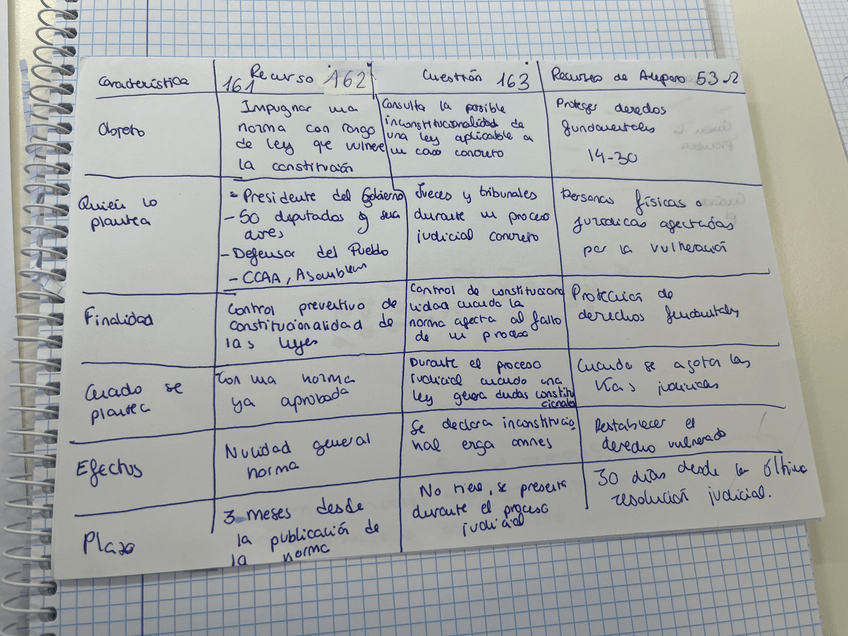 Característica
Recurso 162
161
Cuestión 163
Recurso de Amparo 53.2
Objeto
Impugnar una
norma con rango
de ley que vulnere
la constitución
Consulta la posible
inconstitucionalidad de
una ley aplicable a
un caso concreto
Proteger derechos
fundamentales
14-30
Quién lo
plantea
- Presidente del Gobierno
- 50 diputados y sena
dores
- Defensor del Pueblo
- CCAA, Asambleas
Jueces y tribunales
durante un proceso
judicial concreto
Personas físicas o
jurídicas afectadas
por la vulneración
Finalidad
Control preventivo de
constitucionalidad de
las leyes
Control de constitucional
idad cuando la
norma afecta al fallo
de un proceso
Protección de
derechos fundamentales
Cuado se
plantea
Con una norma
ya aprobada
Durante el proceso
judicial cuando una
ley genera dudas constitu
cionales
Cuando se agotan las
vías judiciales
Efectos
Nulidad general
norma
Se declara inconstitucio
nal erga omnes
Restablecer el
derecho vulnerado
Plazo
3 meses desde
la publicación de
la norma
No tiene, se presenta
durante el proceso
judicial
30 días desde la última
resolución judicial.